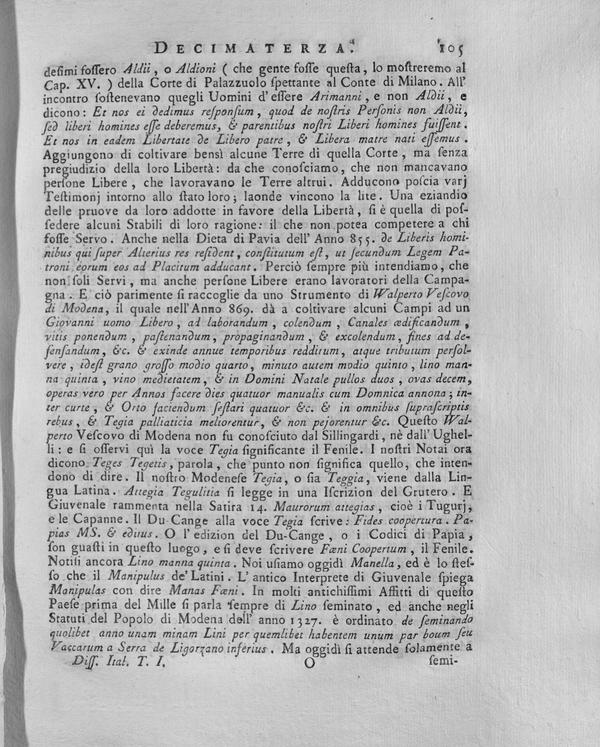 DECIMATERZA. 105
desimi fossero Aldii, o Aldioni ( che gente fosse questa, lo mostreremo al
Cap. XV. ) della Corte di Palazzuolo spettante al Conte di Milano. All'
incontro sostenevano quegli Uomini d'essere Arimanni, e non Aldii, e
dicono: Et nos ei dedimus responsum, quod de nostris Personis non Aldii,
sed liberi homines esse deberemus, & parentibus nostri Liberi homines fuissent.
Et nos in eadem Libertate de Libero patre, & Libera matre nati essemus.
Aggiungono di coltivare bensì alcune Terre di quella Corte, ma senza
pregiudizio della loro Libertà: da che conosciamo, che non mancavano
persone Libere, che lavoravano le Terre altrui. Adducono poscia varj
Testimonj intorno allo stato loro; laonde vincono la lite. Una eziandio
delle pruove da loro addotte in favore della Libertà, si è quella di pos-
sedere alcuni Stabili di loro ragione: il che non potea competere a chi
fosse Servo. Anche nella Dieta di Pavia dell' Anno 855. de Liberis homi-
nibus qui super Alterius res resident, constitutum est, ut secundum Legem Pa-
troni eorum eos ad Placitum adducant. Perciò sempre più intendiamo, che
non soli Servi, ma anche persone Libere erano lavoratori della Campa-
gna. E ciò parimente si raccoglie da uno Strumento di Walperto Vescovo
di Modena, il quale nell'Anno 869. dà a coltivare alcuni Campi ad un
Giovanni uomo Libero, ad laborandum, colendum, Canales ædificandum,
vitis ponendum, pastenandum, propaginandum, & excolendum, fines ad de-
fensandum, &c. & exinde annue temporibus redditum, atque tributum persol-
vere, idest grano grosso modio quarto, minuto autem modio quinto, lino man-
na quinta, vino medietatem, & in Domini Natale pullos duos, ovas decem,
operas vero per Annos facere dies quatuor manualis cum Domnica annona; in-
ter curte, & Orto faciendum sestari quatuor &c. & in omnibus suprascriptis
rebus, & Tegia palliaticia meliorentur, & non pejorentur &c. Questo Wal-
perto Vescovo di Modena non fu conosciuto dal Sillingardi, nè dall' Ughel-
li: e si osservi quì la voce Tegia significante il Fenile. I nostri Notai ora
dicono Teges Tegetis, parola, che punto non significa quello, che inten-
dono di dire. Il nostro Modenese Tegia, o sia Teggia, viene dalla Lin-
gua Latina. Attegia Tegulitia si legge in una Iscrizion del Grutero. E
Giuvenale rammenta nella Satira 14. Maurorum attegias, cioè i Tugurj,
e le Capanne. Il Du Cange alla voce Tegia scrive: Fides coopertura. Pa-
pias MS. & editus. O l' edizion del Du-Cange, o i Codici di Papia,
son guasti in questo luogo, e si deve scrivere Fœni Coopertum, il Fenile.
Notisi ancora Lino manna quinta. Noi usiamo oggidì Manella, ed è lo stes-
so che il Manipulus de' Latini. L' antico Interprete di Giuvenale spiega
Manipulas con dire Manas Fœni. In molti antichissimi Affitti di questo
Paese prima del Mille si parla sempre di Lino seminato, ed anche negli
Statuti del Popolo di Modena dell' anno 1327. è ordinato de seminando
quolibet anno unam minam Lini per quemlibet habentem unum par boum seu
Vaccarum a Serra de Ligorzano inferius. Ma oggidì si attende solamente a
Diss. Ital. T. I. O semi-